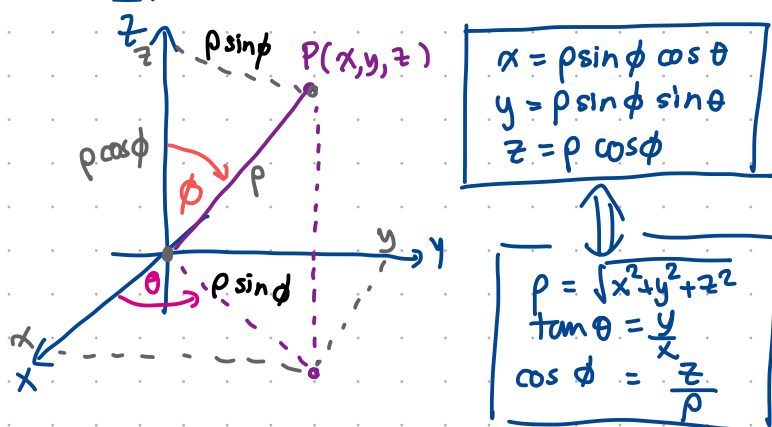 Z
z
ρ sinϕ
P(x,y,z)
ρ cosϕ
ϕ
ρ
y
Y
θ
ρ sinϕ
x
X
x = ρ sin ϕ cos θ
y = ρ sin ϕ sin θ
z = ρ cos ϕ
⇕
ρ = √x²+y²+z²
tan θ = y/x
cos ϕ = z/ρ